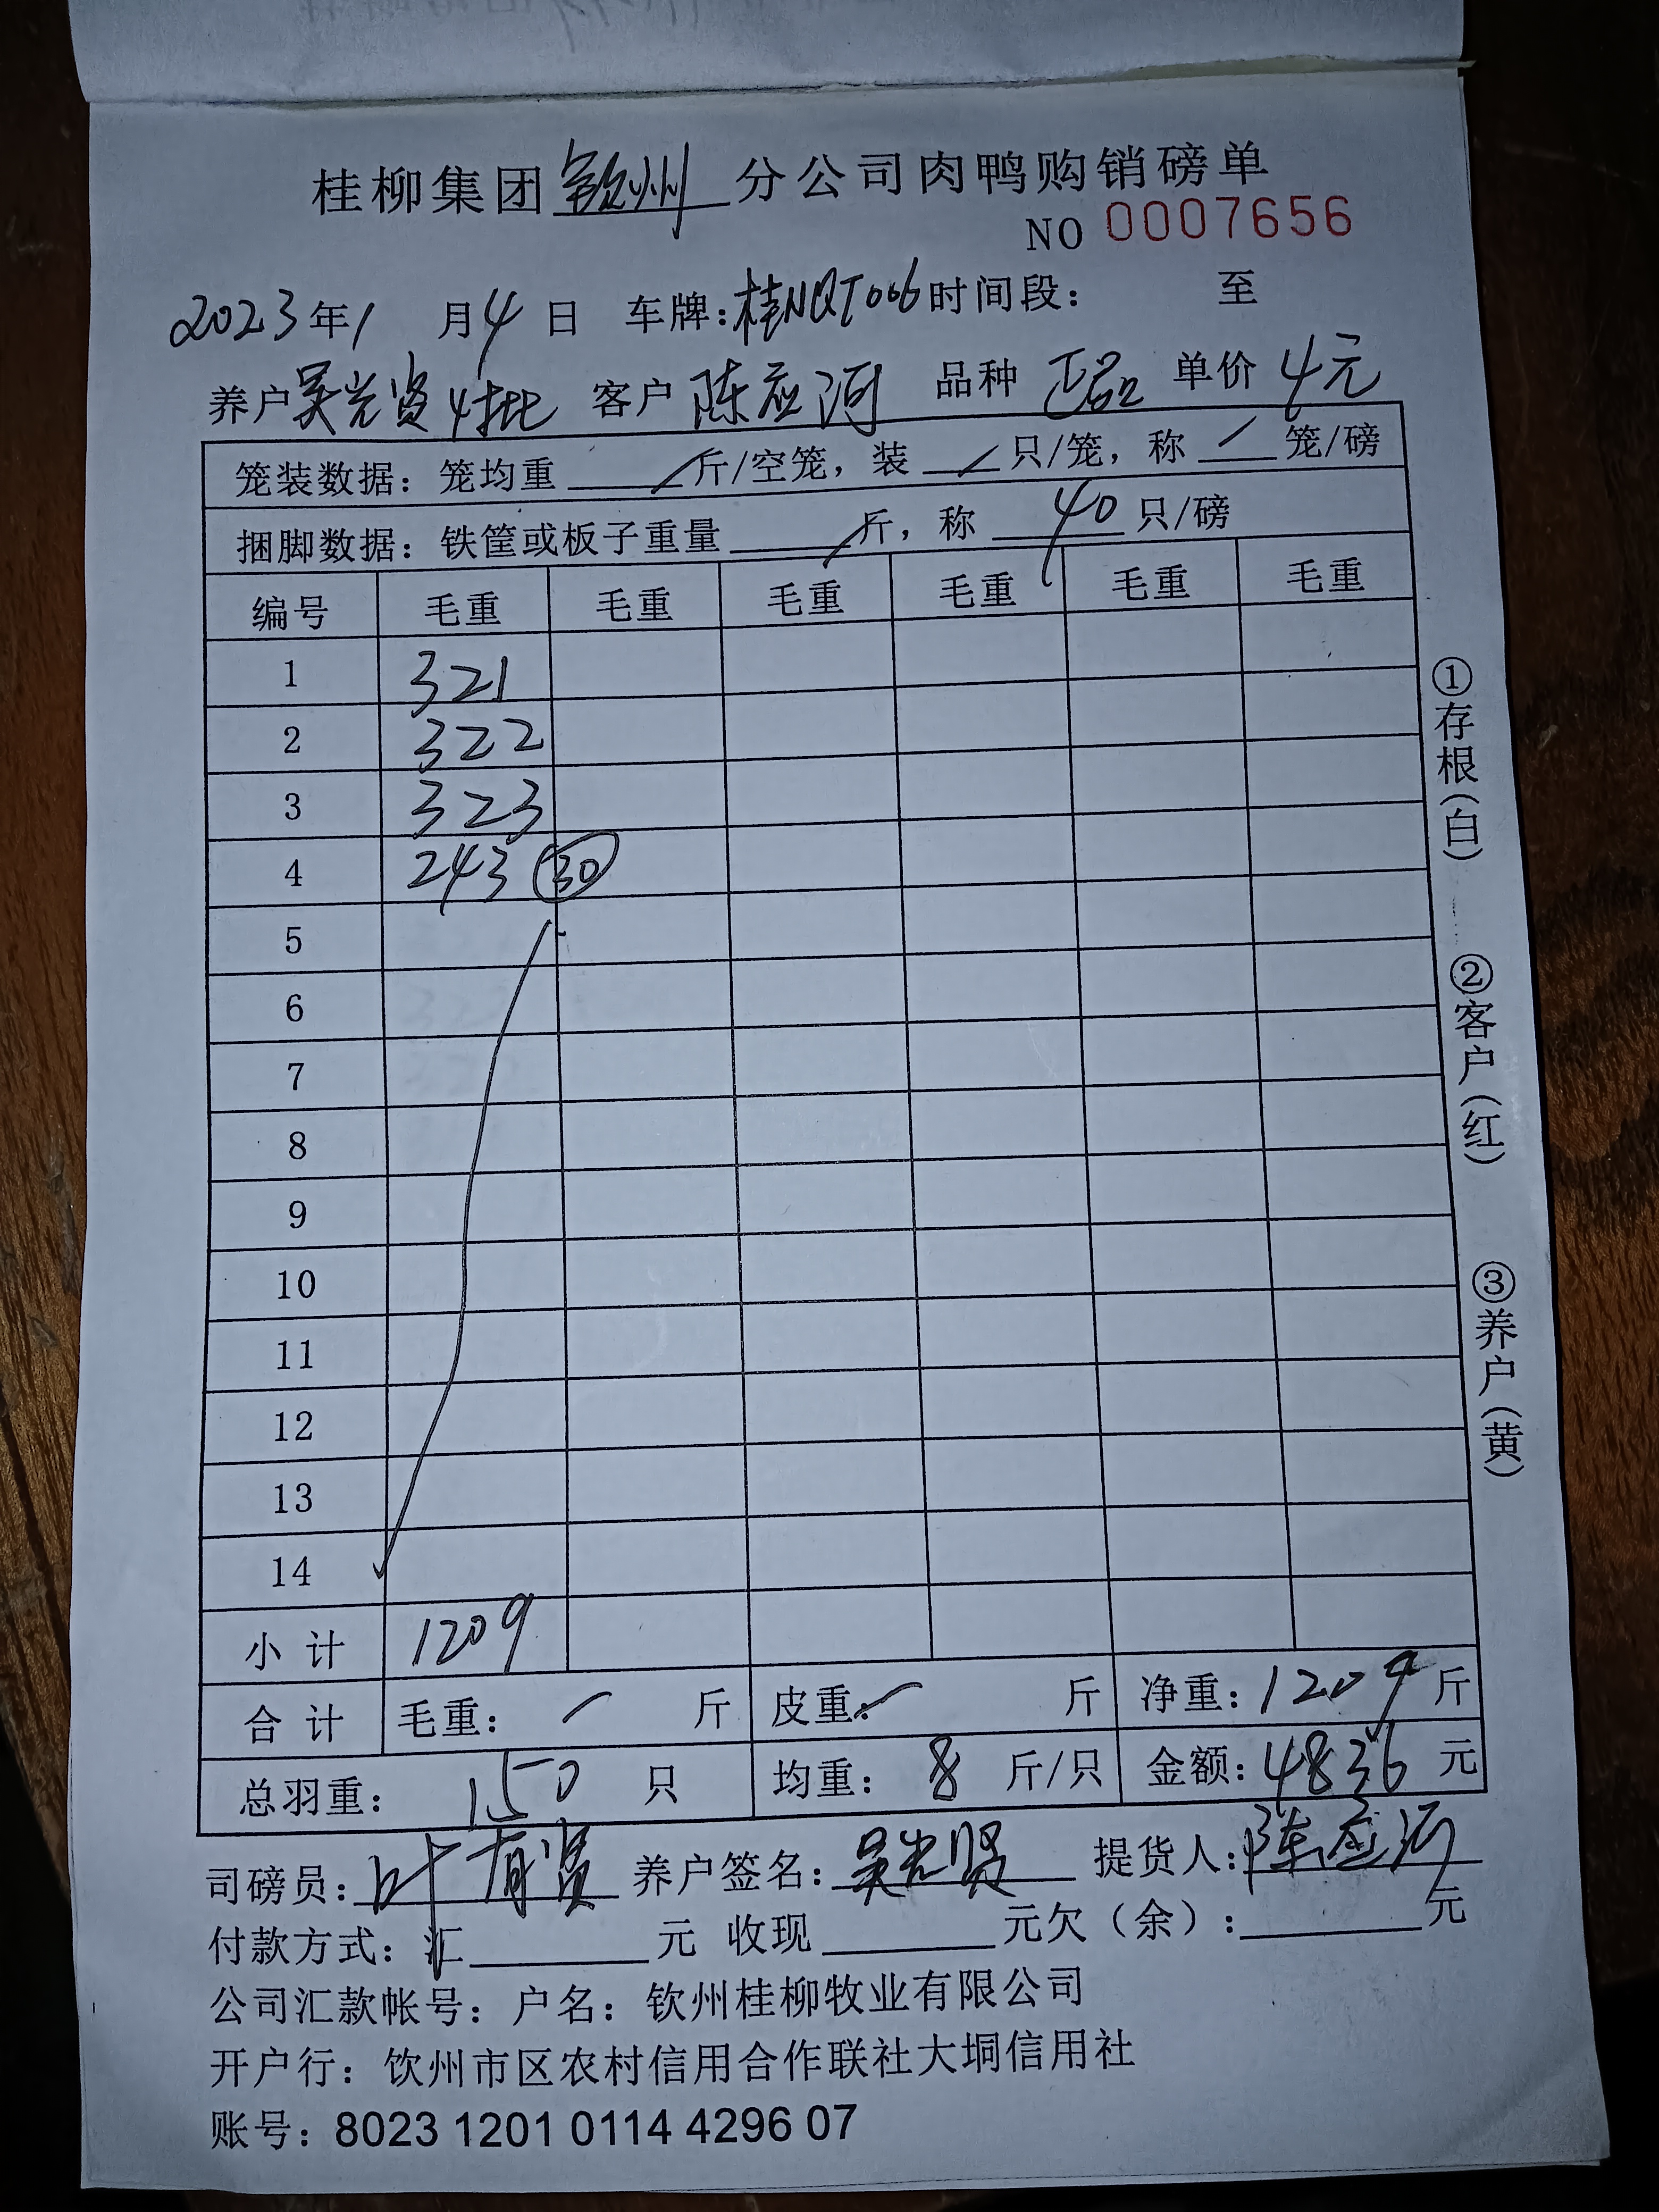 桂柳集团钦州分公司肉鸭购销磅单
NO 0007656
2023年1月4日 车牌:桂NQT006时间段: 至
养户吴光贤4批 客户陈应河 品种 正品 单价 4元
笼装数据:笼均重 / 斤/空笼,装 / 只/笼,称 / 笼/磅
捆脚数据:铁筐或板子重量 / 斤,称 40 只/磅
编号 毛重 毛重 毛重 毛重 毛重 毛重
1 321
2 322
3 323
4 243 30
5
6
7
8
9
10
11
12
13
14
小计 1209
合计 毛重: / 斤 皮重: / 斤 净重:1209斤
总羽重: 150 只 均重: 8 斤/只 金额:4836元
司磅员:叶有贤 养户签名:吴光贤 提货人:陈应河
付款方式:汇 元 收现 元欠(余): 元
公司汇款帐号:户名:钦州桂柳牧业有限公司
开户行:钦州市区农村信用合作联社大垌信用社
账号:8023 1201 0114 4296 07
①存根(白) ②客户(红) ③养户(黄)